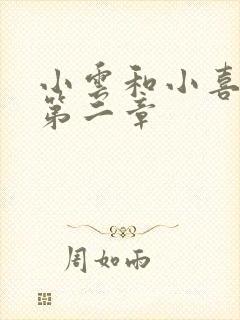 小雲和小喜
第二章
周如雨